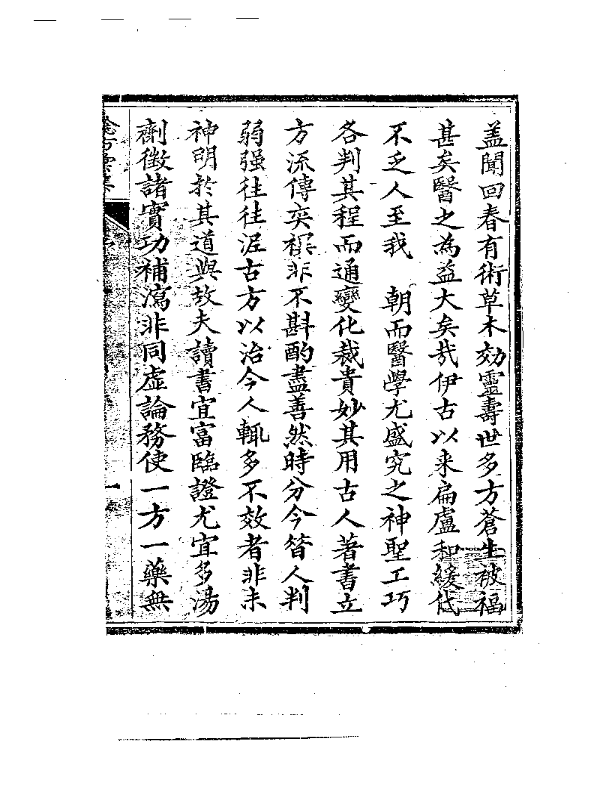 盖聞回春有術草木効靈壽世多方蒼生被福
甚矣醫之為益大矣㢤伊古以来扁盧和緩代
不乏人至我　朝而醫學尤盛究之神聖工巧
各判其程而通變化裁貴妙其用古人著書立
方流傳奕禩非不斟酌盡善然時分今昝人判
弱强往往泥古方以治今人輒多不效者非未
神明於其道與故夫讀書宜富臨證尤宜多湯
劑徵諸實功補瀉非同虛論務使一方一藥無
一